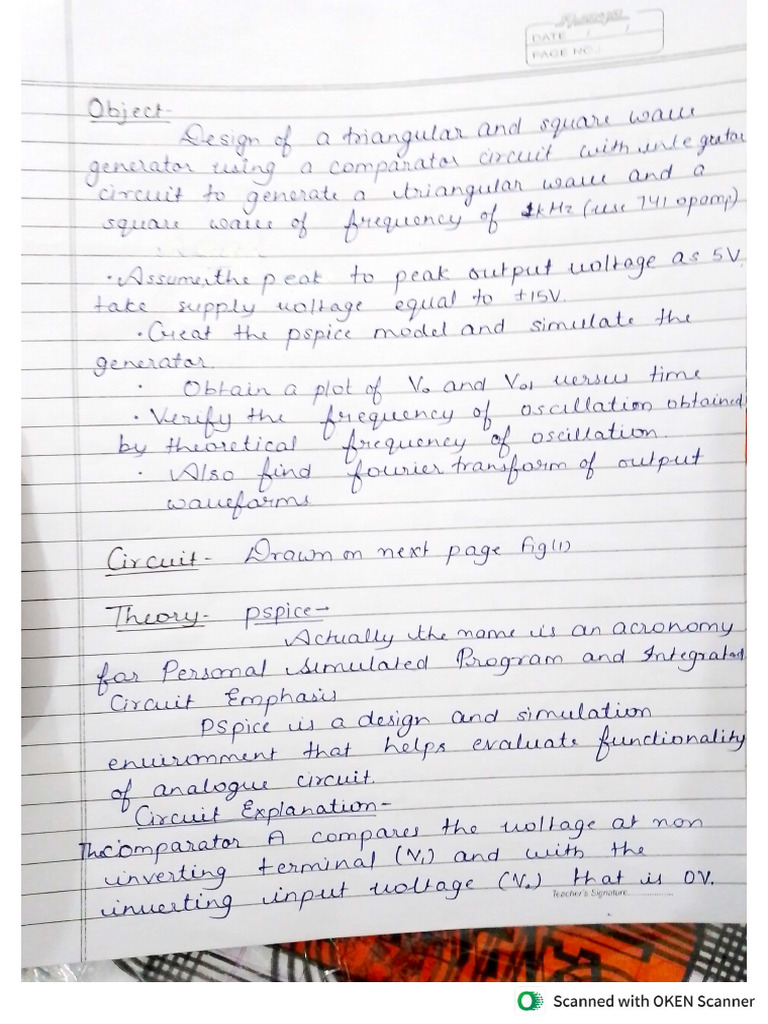 DATE / /
PAGE NO.:
Object-
Design of a triangular and square wave
generator using a comparator circuit with integrator
circuit to generate a triangular wave and a
square wave of frequency of 1kHz (use 741 opamp)
• Assume, the peak to peak output voltage as 5V
take supply voltage equal to ±15V.
• Creat the pspice model and simulate the
generator.
• Obtain a plot of Vo and Vo1 versus time
• Verify the frequency of oscillation obtained
by theoretical frequency of oscillation.
• Also find fourier transform of output
waveforms
Circuit- Drawn on next page fig(1)
Theory- pspice→
Actually the name is an acronomy
for Personal Simulated Program and Integrated
Circuit Emphasis
PSpice is a design and simulation
environment that helps evaluate functionality
of analogue circuit.
Circuit Explanation-
The comparator A compares the voltage at non
inverting terminal (V1) and with the
inverting input voltage (Vo) that is 0V.
Teacher's Signature..............
Scanned with OKEN Scanner